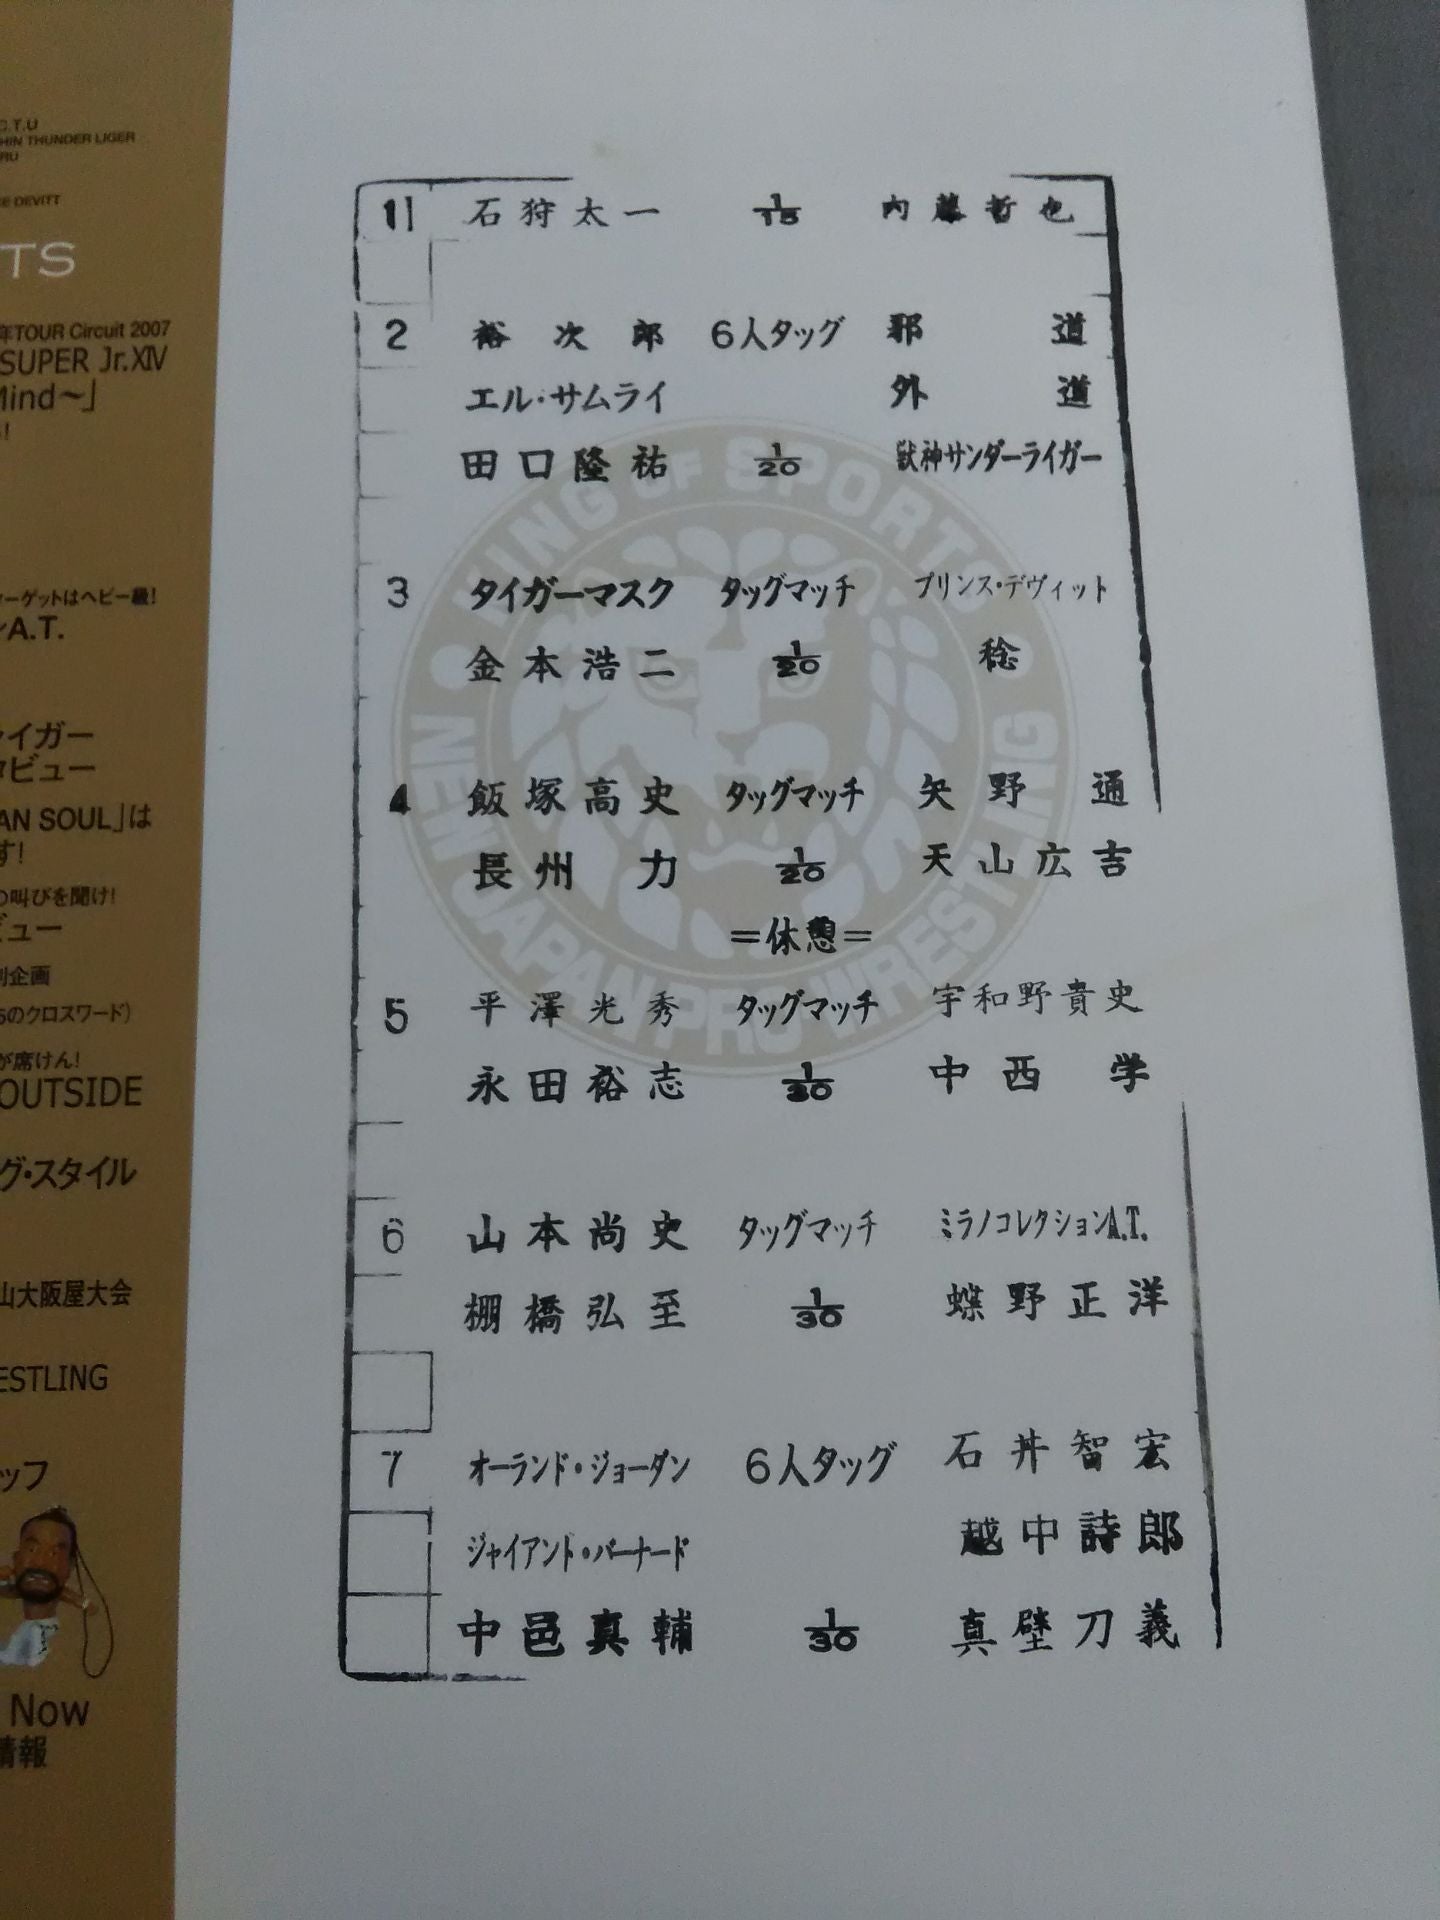 C.T.U
HIN THUNDER LIGER
RU
E DEVITT
TS
年TOUR Circuit 2007
SUPER Jr.XIV
Mind～」
!
ーゲットはヘビー級!
A.T.
イガー
ビュー
AN SOUL」は
す!
の叫びを聞け!
ビュー
別企画
のクロスワード)
が席けん!
OUTSIDE
グ・スタイル
山大阪屋大会
ESTLING
ッフ
Now
情報
1 石狩太一 1/15 内藤哲也
2 裕次郎 6人タッグ 邪道
エル・サムライ 外道
田口隆祐 1/20 獣神サンダーライガー
3 タイガーマスク タッグマッチ プリンス・デヴィット
金本浩二 1/20 稔
4 飯塚高史 タッグマッチ 矢野通
長州力 1/20 天山広吉
=休憩=
5 平澤光秀 タッグマッチ 宇和野貴史
永田裕志 1/30 中西学
6 山本尚史 タッグマッチ ミラノコレクションA.T.
棚橋弘至 1/30 蝶野正洋
7 オーランド・ジョーダン 6人タッグ 石井智宏
ジャイアント・バーナード 越中詩郎
中邑真輔 1/30 真壁刀義
KING OF SPORTS
NEW JAPAN PRO WRESTLING